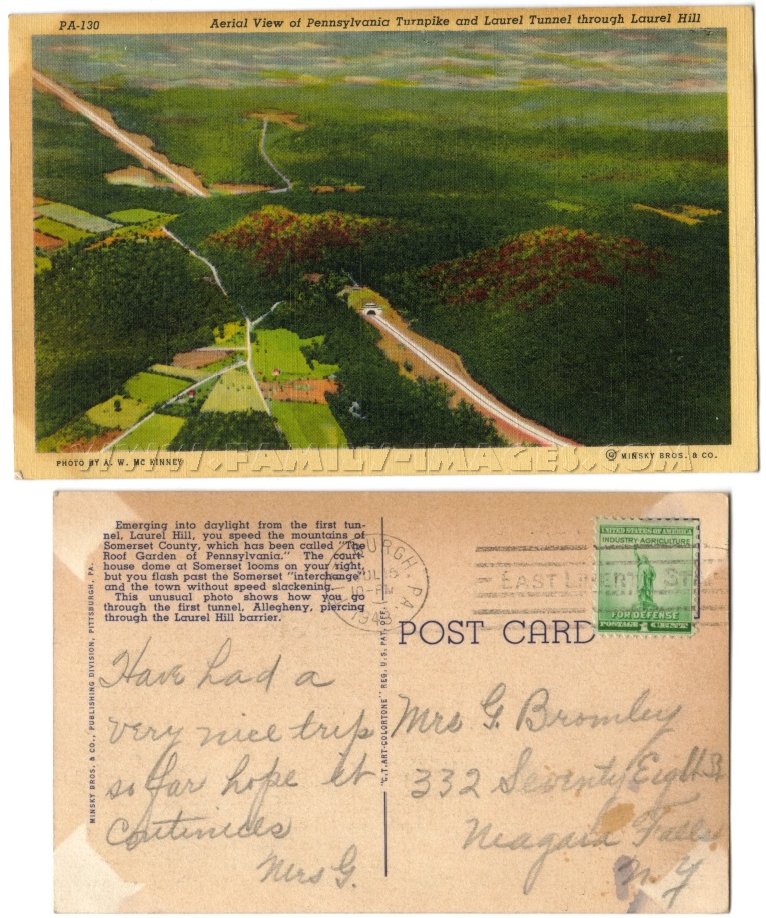 PA-130
Aerial View of Pennsylvania Turnpike and Laurel Tunnel through Laurel Hill
WWW.FAMILY-IMAGES.COM
PHOTO BY A. W. MC KINNEY
© MINSKY BROS. & CO.
Emerging into daylight from the first tun-
nel, Laurel Hill, you speed the mountains of
Somerset County, which has been called "The
Roof Garden of Pennsylvania." The court-
house dome at Somerset looms on your right,
but you flash past the Somerset "interchange"
and the town without speed slackening.
This unusual photo shows how you go
through the first tunnel, Allegheny, piercing
through the Laurel Hill barrier.
MINSKY BROS. & CO., PUBLISHING DIVISION, PITTSBURGH, PA.
"C.T. ART-COLORTONE" REG. U.S. PAT. OFF.
BURGH, PA.
JUL
194
EAST LIBERTY STA
UNITED STATES OF AMERICA
INDUSTRY AGRICULTURE
FOR DEFENSE
POSTAGE 1 CENT
POST CARD
Have had a
very nice trip
so far hope it
continues
Mrs G.
Mrs G. Bromley
332 Seventy Eighth St
Niagara Falls
N Y